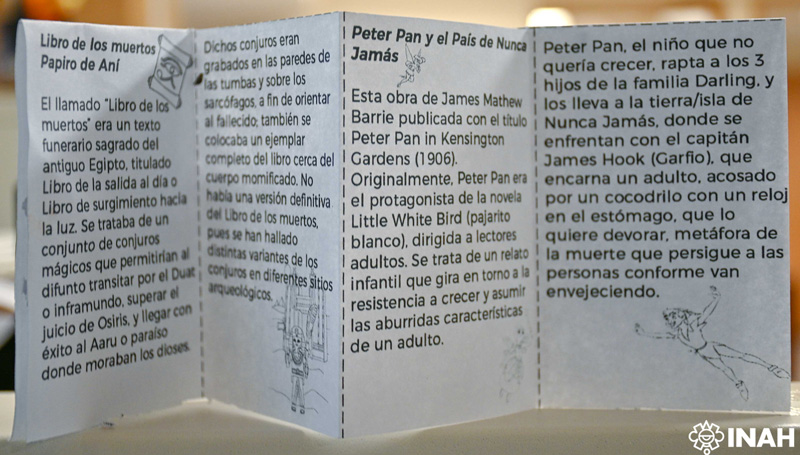 Libro de los muertos
Papiro de Aní
El llamado "Libro de los
muertos" era un texto
funerario sagrado del
antiguo Egipto, titulado
Libro de la salida al día o
Libro de surgimiento hacia
la luz. Se trataba de un
conjunto de conjuros
mágicos que permitirían al
difunto transitar por el Duat
o inframundo, superar el
juicio de Osiris, y llegar con
éxito al Aaru o paraíso
donde moraban los dioses.
Dichos conjuros eran
grabados en las paredes de
las tumbas y sobre los
sarcófagos, a fin de orientar
al fallecido; también se
colocaba un ejemplar
completo del libro cerca del
cuerpo momificado. No
había una versión definitiva
del Libro de los muertos,
pues se han hallado
distintas variantes de los
conjuros en diferentes sitios
arqueológicos.
Peter Pan y el País de Nunca
Jamás
Esta obra de James Mathew
Barrie publicada con el título
Peter Pan in Kensington
Gardens (1906).
Originalmente, Peter Pan era
el protagonista de la novela
Little White Bird (pajarito
blanco), dirigida a lectores
adultos. Se trata de un relato
infantil que gira en torno a la
resistencia a crecer y asumir
las aburridas características
de un adulto.
Peter Pan, el niño que no
quería crecer, rapta a los 3
hijos de la familia Darling, y
los lleva a la tierra/isla de
Nunca Jamás, donde se
enfrentan con el capitán
James Hook (Garfio), que
encarna un adulto, acosado
por un cocodrilo con un reloj
en el estómago, que lo
quiere devorar, metáfora de
la muerte que persigue a las
personas conforme van
envejeciendo.
INAH